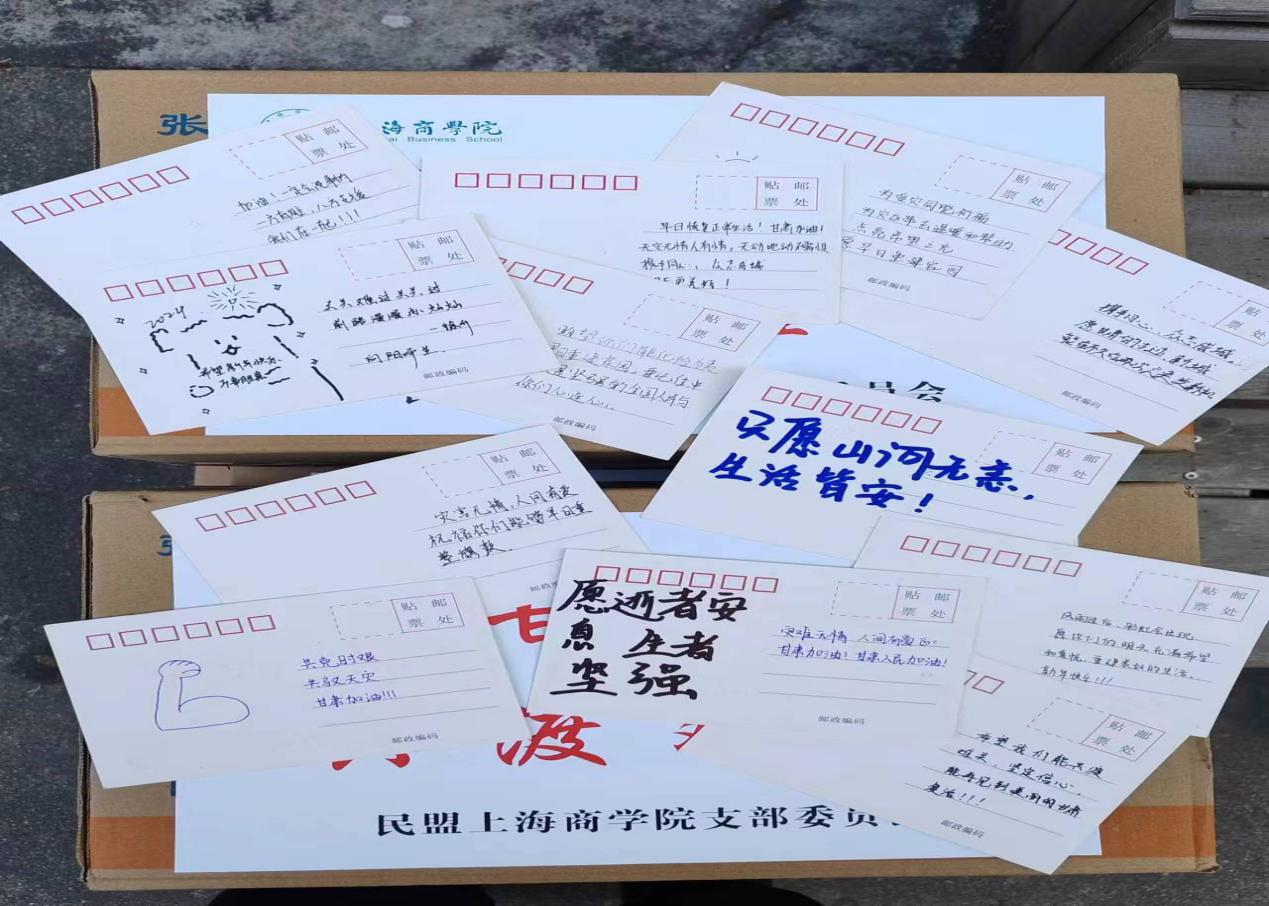 张
海商學院
Business School
贴 邮
票 处
加油!一定会没事的
一方有难,八方支援
我们在一起!!!!
贴 邮
票 处
早日恢复正常生活!甘肃加油!
天灾无情人有情,天动地动不需惧
携手同心,众志成城
更美好!
贴 邮
票 处
为受灾同胞祈福
为灾区带去温暖和帮助
点亮希望之光
早日重建家园
邮政编码
贴 邮
票 处
2024
希望新年快乐
万事胜意
关关难过关关过
前路漫漫亦灿灿
向阳而生.
邮政编码
贴 邮
票 处
希望你们能化险为夷
重建家园,要记住中
坚强的全国人民与
你们心连心.
邮政编码
贴
票 处
携手同心、众志成城
邮政编码
员会
贴 邮
票 处
只愿山河无恙,
生活皆安!
贴 邮
票 处
灾害无情,人间有爱
祝福你们能够早日重
整旗鼓.
贴 邮
票 处
共克时艰
共驭天灾
甘肃加油!!!
邮政编码
贴 邮
票 处
愿逝者安
息 生者
坚强
灾难无情 人间有爱
甘肃加油!甘肃人民加油!
邮政编码
贴 邮
票 处
风雨过后,彩虹会出现
愿你们的明天充满希望
和喜悦,重建美好的生活.
新年快乐!!!
贴 邮
票 处
希望我们能共渡
难关,坚定信心,
能再见到美丽的甘肃
复活!!!
邮政编码
甘
渡
民盟上海商学院支部委员